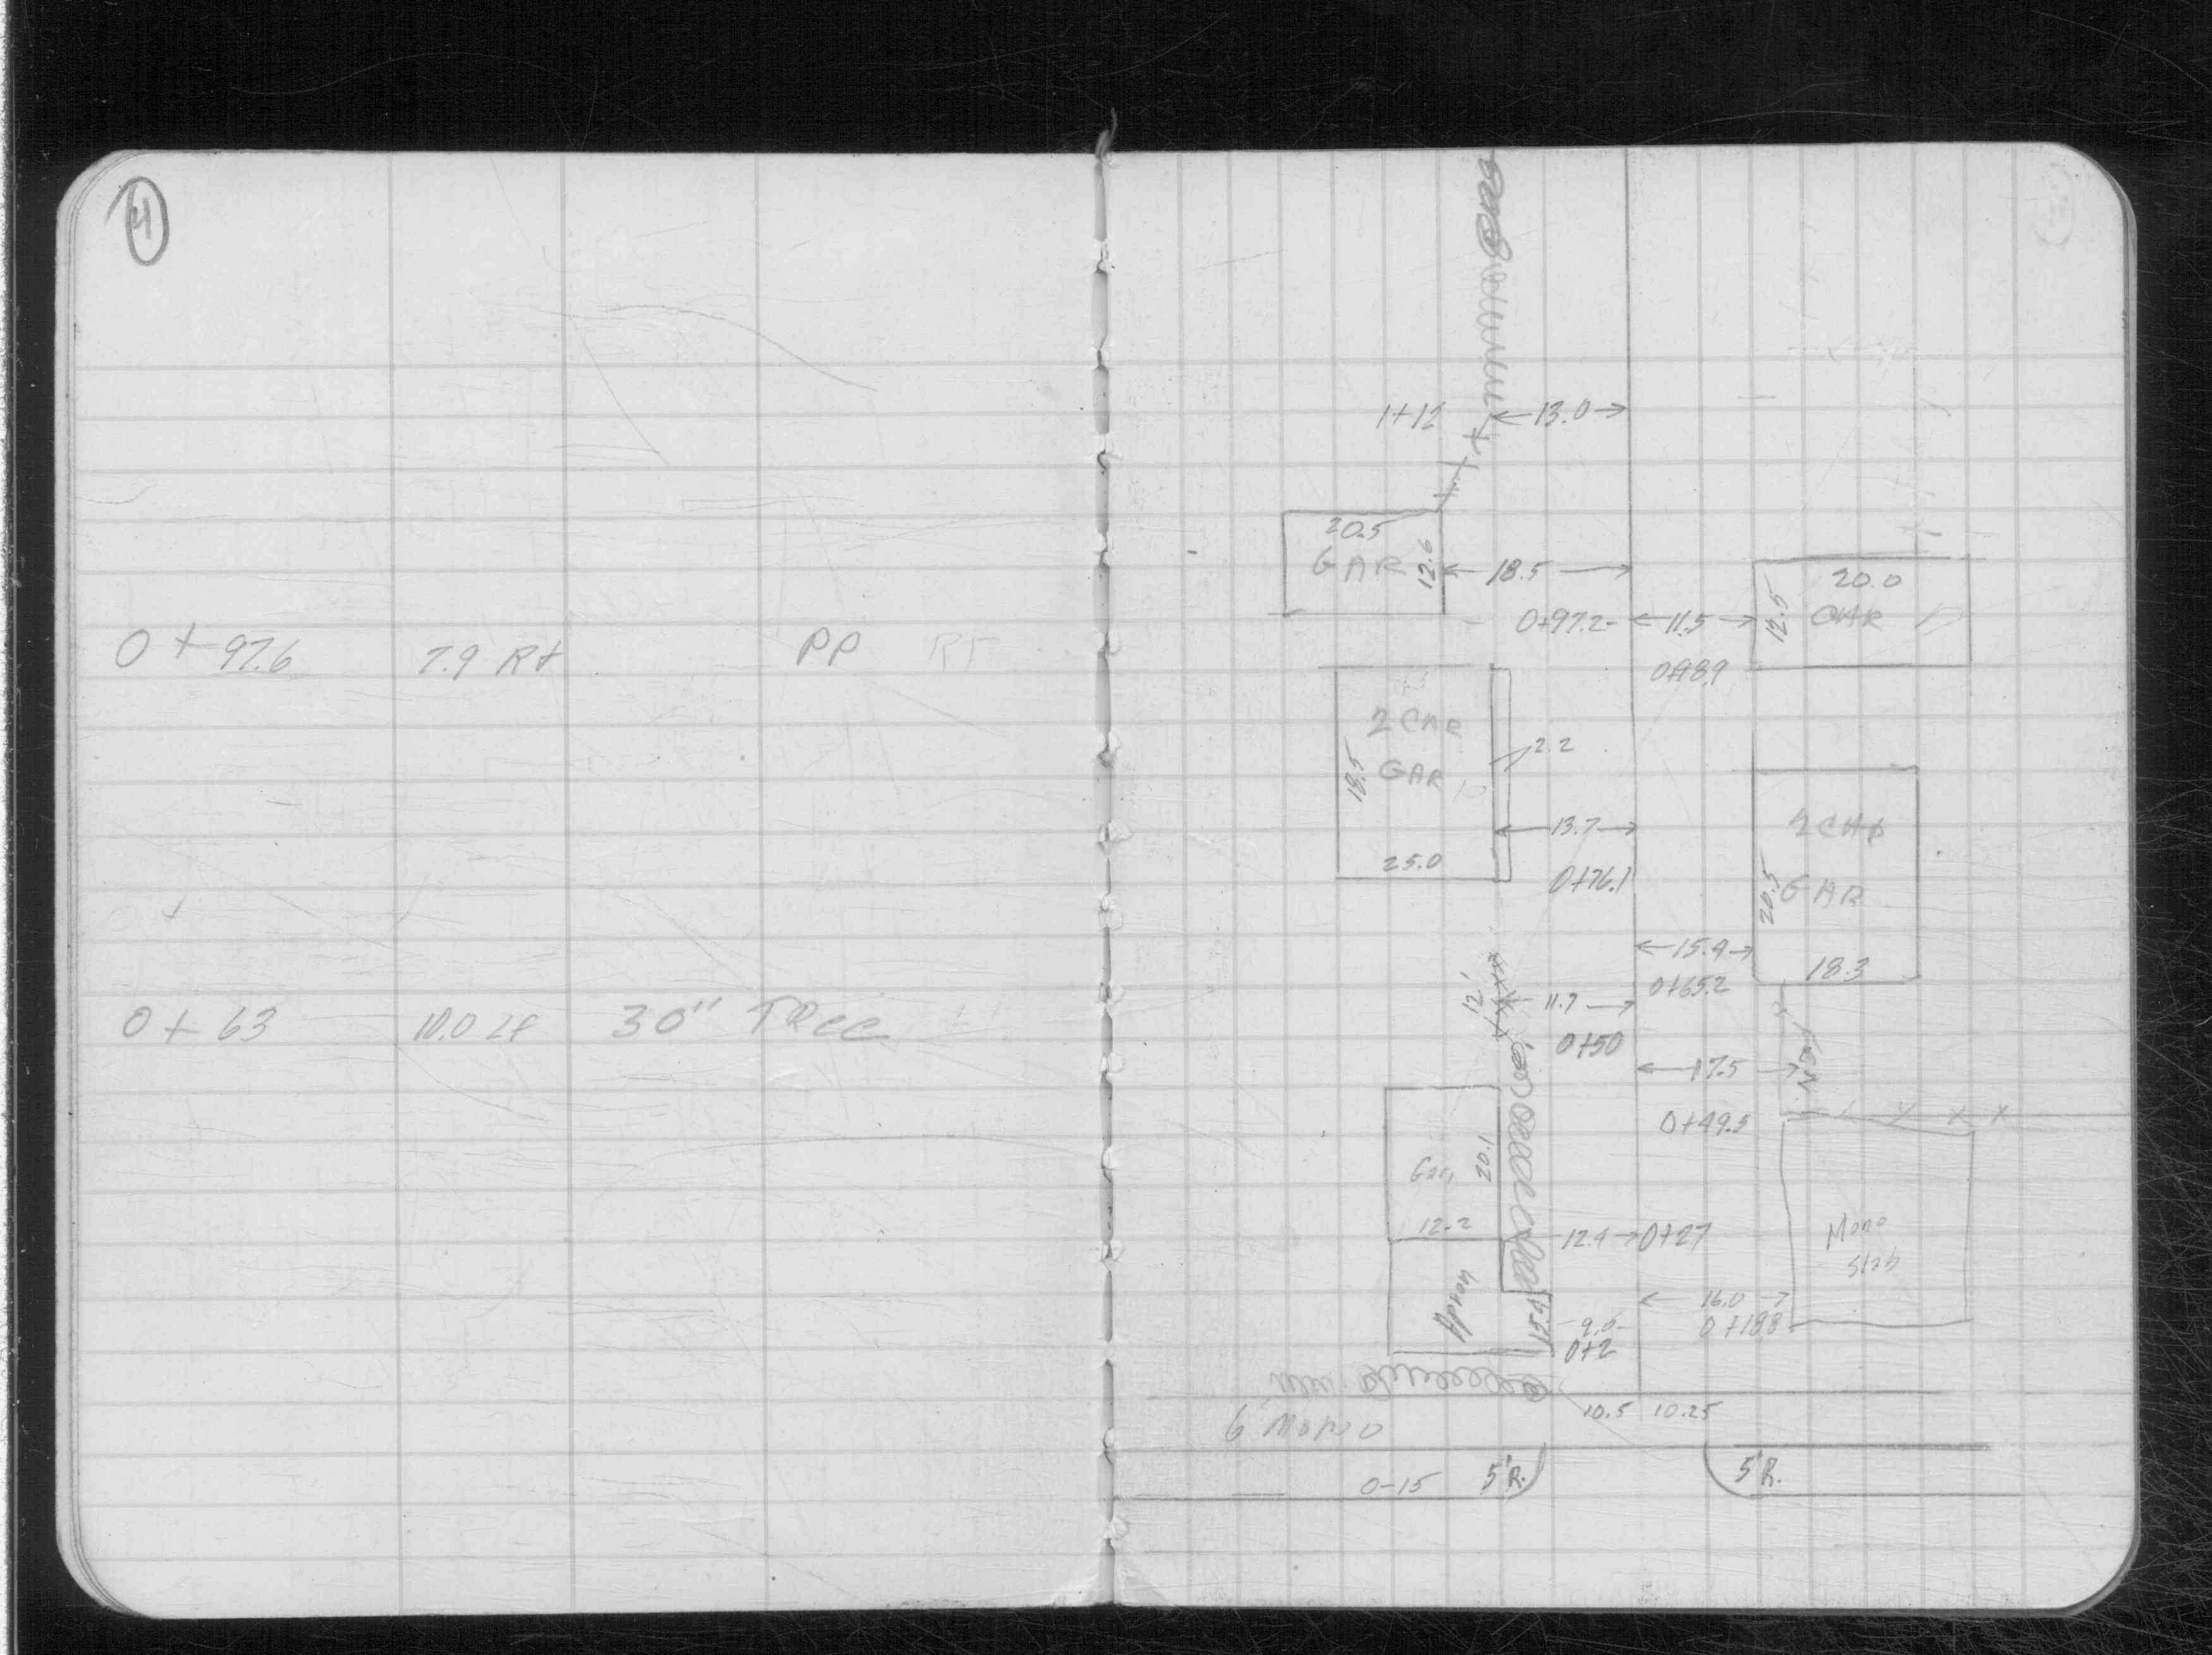 0+97.6 7.9 Rt PP RT
0+63 10.0 Lt 30" Tree
1+12 13.0
20.5
GAR 12.6 18.5
20.0
12.5
0+97.2 11.5
0+98.9
2 CAR
GAR
18.5
2.2
13.7
25.0
0+76.1
2 CAR
GAR
20.5
15.4
18.3
0+65.2
12'
11.7
0+50
17.5
0+49.5
Gar
20.1
12.2
12.4 0+27
Mono
Slab
Apron
15.4
16.0
0+18.8
9.6
0+2
10.5 10.25
6' Mono
0-15 5'R. 5'R.